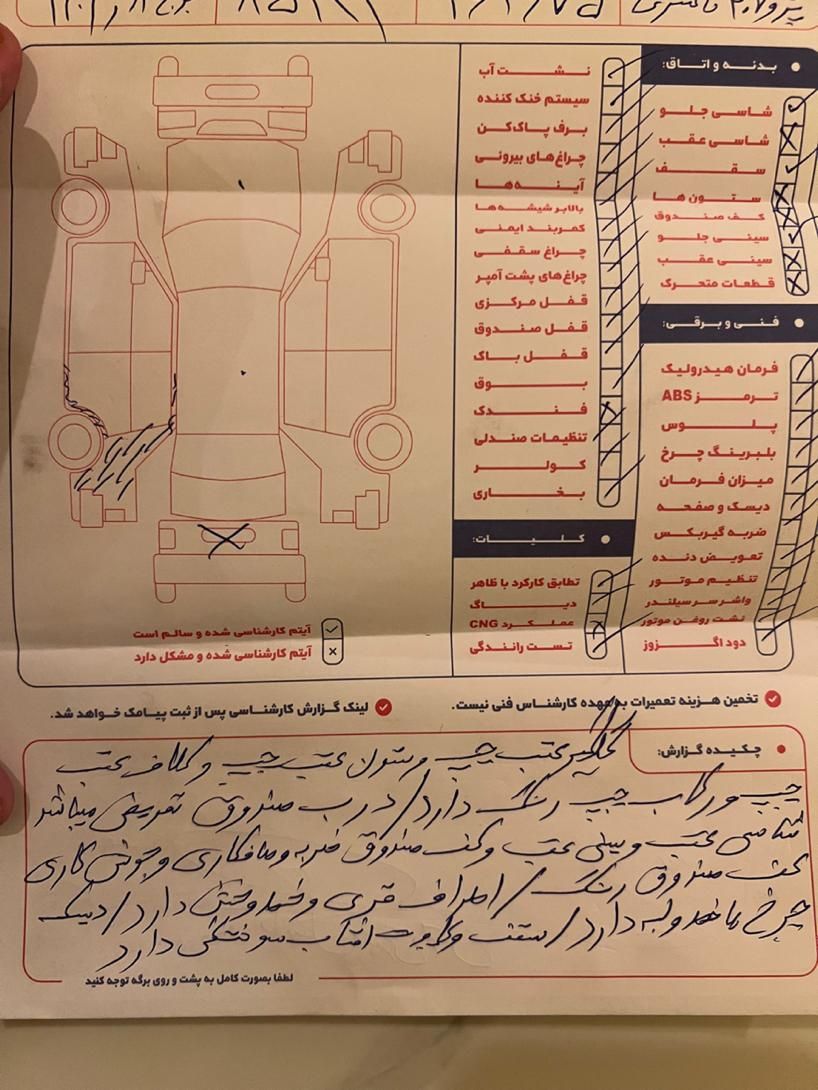 بدنه و اتاق:
شاسی جلو
شاسی عقب
سقف
ستون ها
کف صندوق
سینی جلو
سینی عقب
قطعات متحرک
فنی و برقی:
فرمان هیدرولیک
ترمز ABS
پلوس
بلبرینگ چرخ
میزان فرمان
دیسک و صفحه
ضربه گیربکس
تعویض دنده
تنظیم موتور
واشر سر سیلندر
نشت روغن موتور
دود اگزوز
نشت آب
سیستم خنک کننده
برف پاک‌کن
چراغ‌های بیرونی
آینه‌ها
بالابر شیشه‌ها
کمربند ایمنی
چراغ سقفی
چراغ‌های پشت آمپر
قفل مرکزی
قفل صندوق
قفل باک
بوق
فندک
تنظیمات صندلی
کولر
بخاری
کلیات:
تطابق کارکرد با ظاهر
دیاگ
عملکرد CNG
تست رانندگی
آیتم کارشناسی شده و سالم است
آیتم کارشناسی شده و مشکل دارد
تخمین هزینه تعمیرات به عهده کارشناس فنی نیست.
لینک گزارش کارشناسی پس از ثبت پیامک خواهد شد.
چکیده گزارش:
گلگیر عقب چپ و ستون عقب چپ و کلاف عقب
چپ و رکاب چپ رنگ دارد / درب صندوق تعویض میباشد
شاسی عقب و سینی عقب و کف صندوق ضربه و صافکاری و جوش کاری
کف صندوق رنگ / اطراف قری و خط و خش دارد / دیسک
چرخ ها خط و لبه دارد / سقف و کاپوت آفتاب سوختگی دارد
لطفا بصورت کامل به پشت و روی برگه توجه کنید